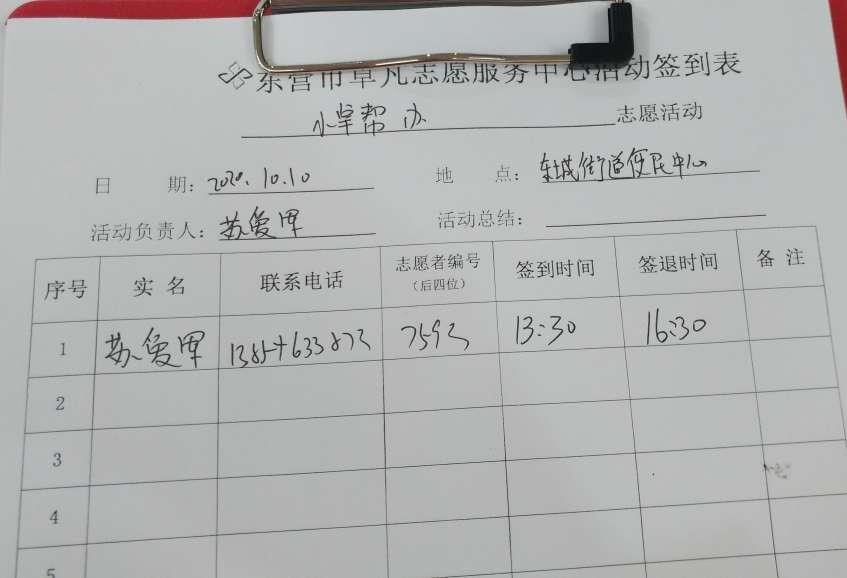 东营市草凡志愿服务中心活动签到表
小草帮办 志愿活动
日 期：2020.10.10 地 点：东城街道便民中心
活动负责人：苏爱军 活动总结：
序号 实 名 联系电话 志愿者编号（后四位） 签到时间 签退时间 备 注
1 苏爱军 13:30 16:30
2
3
4
5